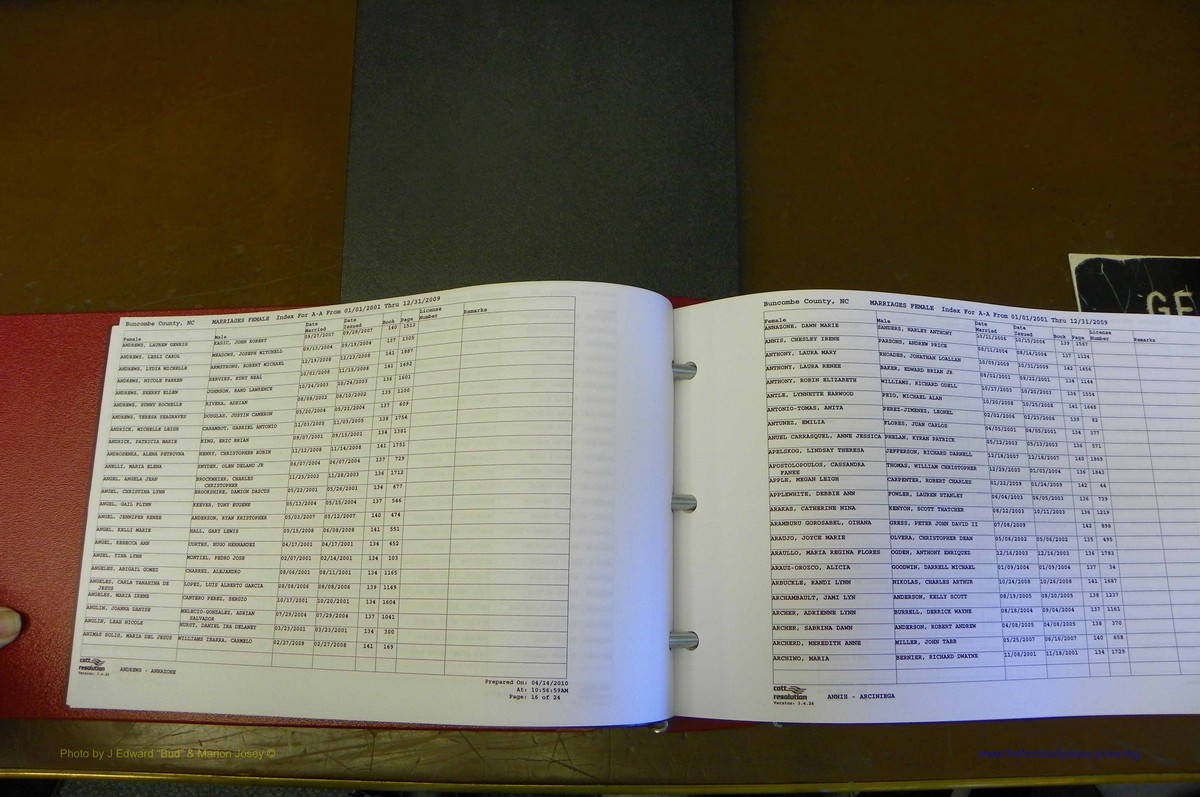 GE
Buncombe County, NC MARRIAGES FEMALE Index For A-A From 01/01/2001 Thru 12/31/2009
Female Male Date Married Date Issued Book Page License Number Remarks
ANDREWS, LAUREN GENEIS KASIC, JOHN ROBERT 09/27/2007 09/26/2007 140 1512
ANDREWS, LESLI CAROL MEADOWS, JOSEPH MITCHELL 137 1309
ANDREWS, LYDIA MICHELLE ARMSTRONG, ROBERT MICHAEL 12/19/2008 12/23/2008 141 1887
ANDREWS, NICOLE PARKER 10/01/2008 141 1492
ANDREWS, SHERRY ELLEN JOHNSON, RAND LAWRENCE 10/24/2003 10/24/2003 136 1601
ANDREWS, SUNNY ROCHELLE RIVERA, ADRIAN 08/08/2002 08/10/2002 135 1200
ANDREWS, TERESA SEAGRAVES DOUGLAS, JUSTIN CAMERON 05/20/2004 05/22/2004 137 609
ANDRICK, MICHELLE LEIGH CARAMBOT, GABRIEL ANTONIO 11/03/2005 11/03/2005 138 1754
ANDRICK, PATRICIA MARIE KING, ERIC BRIAN 09/07/2001 09/15/2001 134 1381
ANDROZENKA, ALENA PETROVNA HENRY, CHRISTOPHER ROBIN 11/12/2008 11/14/2008 141 1751
ANELLI, MARIA ELENA SNYDER, OLEN DELANO JR 06/07/2004 06/07/2004 137 729
ANGEL, ANGELA JEAN BROCKMEIER, CHARLES CHRISTOPHER 11/25/2003 11/28/2003 136 1712
ANGEL, CHRISTINA LYNN BROOKSHIRE, DAMION DASCUS 05/22/2001 05/26/2001 134 677
ANGEL, GAIL FLYNN KEEVER, TONY EUGENE 05/13/2004 05/15/2004 137 566
ANGEL, JENNIFER RENEE ANDERSON, RYAN KRISTOPHER 05/03/2007 05/12/2007 140 474
ANGEL, KELLI MARIE HALL, GARY LEWIS 05/15/2008 06/08/2008 141 551
ANGEL, REBECCA ANN CURTES, HUGO HERNANDEZ 04/17/2001 04/17/2001 134 452
ANGEL, TINA LYNN MONTIEL, PEDRO JOSE 02/07/2001 02/14/2001 134 103
ANGELES, ABIGAIL GOMEZ CHARREZ, ALEJANDRO 08/06/2001 08/11/2001 134 1165
ANGELES, CARLA TANARINA DE JESUS LOPEZ, LUIS ALBERTO GARCIA 08/08/2006 08/08/2006 139 1149
ANGELES, MARIA IRENE CANTERO PEREZ, SERGIO 10/17/2001 10/20/2001 134 1604
ANGLIN, JOANNA DANISE MELECIO-GONZALEZ, ADRIAN SALVADOR 07/29/2004 07/29/2004 137 1041
ANGLIN, LEAH NICOLE HURST, DANIEL IRA DELANEY 03/23/2001 03/23/2001 134 300
ANIMAS SOLIS, MARIA DEL JESUS WILLIAMS IBARRA, CARMELO 02/27/2008 02/27/2008 141 169
cott resolution
Version: 3.4.26
ANDREWS - ANNAZONE
Prepared On: 04/14/2010
At: 10:56:59AM
Page: 16 of 24
Buncombe County, NC MARRIAGES FEMALE Index For A-A From 01/01/2001 Thru 12/31/2009
Female Male Date Married Date Issued Book Page License Number Remarks
ANNAZONE, DAWN MARIE SANDERS, HARLEY ANTHONY 10/11/2006 10/15/2006 139 1567
ANNIS, CHESLEY IRENE PARSONS, ANDREW PRICE 08/11/2004 08/14/2004 137 1124
ANTHONY, LAURA MARY RHOADES, JONATHAN LOALLAN 10/09/2009 10/31/2009 142 1456
ANTHONY, LAURA RENEE BAKER, EDWARD BRIAN JR 08/02/2001 09/22/2001 134 1144
ANTHONY, ROBIN ELIZABETH WILLIAMS, RICHARD ODELL 10/17/2003 10/20/2003 136 1554
ANTLE, LYNNETTE EARWOOD PRIO, MICHAEL ALAN 10/20/2008 10/25/2008 141 1648
ANTONIO-TOMAS, AMITA PEREZ-JIMENEZ, LEONEL 139 82
ANTUNEZ, EMILIA FLORES, JUAN CARLOS 04/05/2001 04/05/2001 134 377
ANUEL CARRASQUEL, ANNE JESSICA PHELAN, KYRAN PATRICK 05/13/2003 05/13/2003 136 571
APELSKOG, LINDSAY THERESA JEFFERSON, RICHARD DARNELL 12/18/2007 12/18/2007 140 1969
APOSTOLOPOULOS, CASSANDRA FANEE THOMAS, WILLIAM CHRISTOPHER 12/29/2003 01/03/2004 136 1843
APPLE, MEGAN LEIGH CARPENTER, ROBERT CHARLES 01/22/2009 01/24/2009 142 44
APPLEWHITE, DEBBIE ANN FOWLER, LAUREN STANLEY 06/04/2003 06/05/2003 136 739
ARAKAS, CATHERINE NINA KENYON, SCOTT THATCHER 136 1219
ARAMBURU GOROSABEL, OIHANA GRESS, PETER JOHN DAVID II 07/08/2009 142 898
ARAUJO, JOYCE MARIE OLVERA, CHRISTOPHER DEAN 05/06/2002 05/06/2002 135 495
ARAULLO, MARIA REGINA FLORES OGDEN, ANTHONY ENRIQUEZ 12/16/2003 12/16/2003 136 1783
ARAUZ-OROZCO, ALICIA GOODWIN, DARRELL MICHAEL 01/09/2004 01/09/2004 137 34
ARBUCKLE, RANDI LYNN NIKOLAS, CHARLES ARTHUR 10/24/2008 10/26/2008 141 1687
ARCHAMBAULT, JAMI LYN ANDERSON, KELLY SCOTT 08/19/2005 08/20/2005 138 1237
ARCHER, ADRIENNE LYNN BURRELL, DERRICK WAYNE 08/18/2004 09/04/2004 137 1161
ARCHER, SABRINA DAWN ANDERSON, ROBERT ANDREW 04/08/2005 04/08/2005 138 370
ARCHERD, MEREDITH ANNE MILLER, JOHN TABB 05/25/2007 06/16/2007 140 658
ARCHINO, MARIA BERNIER, RICHARD DWAYNE 11/08/2001 11/18/2001 134 1729
cott resolution
Version: 3.4.26
ANNIS - ARCINIEGA
Photo by J Edward "Bud" & Marion Josey ©